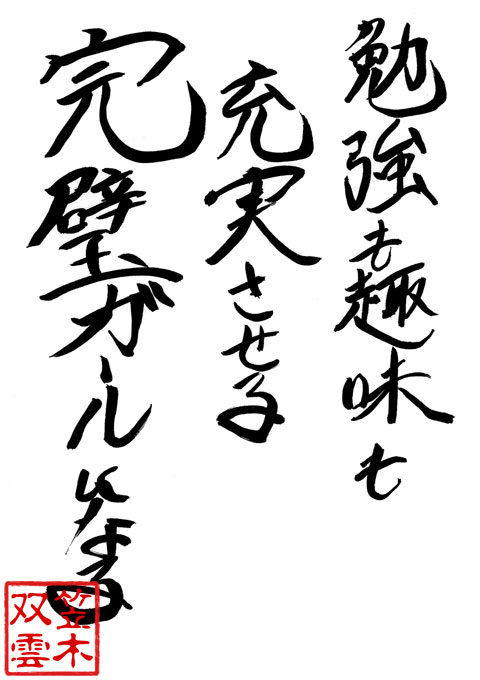 勉強も趣味も
充実させる
完璧ガールになる
笠木
双雲